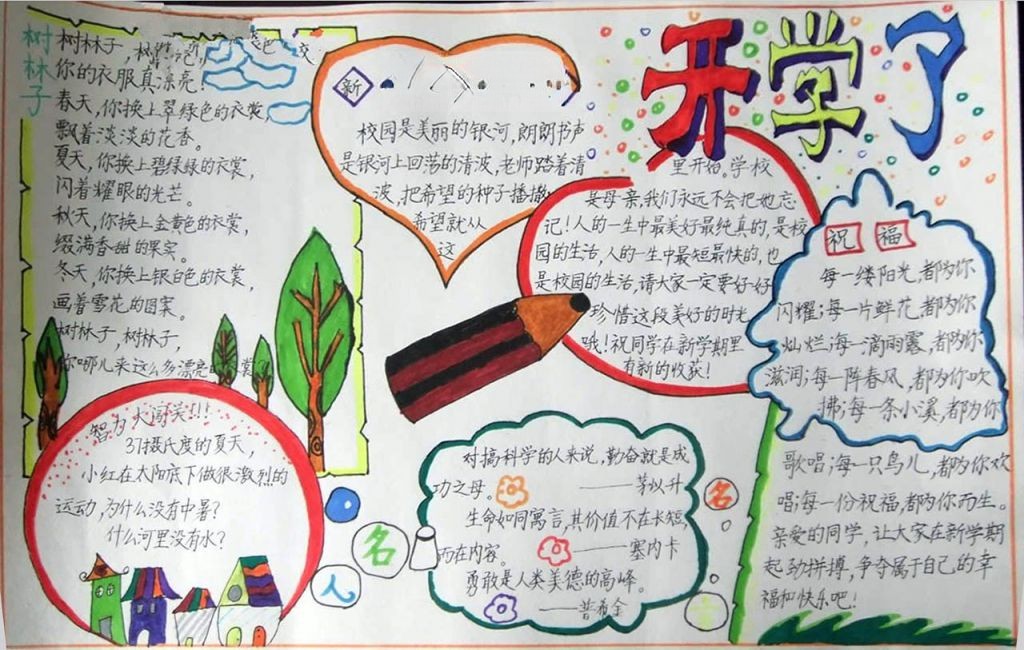 开学了
树林子
树林子,
你的衣服真漂亮!
春天,你换上翠绿色的衣裳,
飘着淡淡的花香。
夏天,你换上碧绿绿的衣裳,
闪着耀眼的光芒。
秋天,你换上金黄色的衣裳,
缀满香甜的果实。
冬天,你换上银白色的衣裳,
画着雪花的图案。
树林子,树林子,
你哪儿来这么多漂亮的衣裳?
新
校园是美丽的银河,朗朗书声
是银河上回荡的清波,老师踏着清
波,把希望的种子播撒
希望就从
这
里开始。学校
是母亲,我们永远不会把她忘
记!人的一生中最美好最纯真的,是校
园的生活,人的一生中最短最快的,也
是校园的生活,请大家一定要好好
珍惜这段美好的时光
哦!祝同学在新学期里
有新的收获!
祝福
每一缕阳光,都为你
闪耀;每一片鲜花,都为你
灿烂;每一滴雨露,都为你
滋润;每一阵春风,都为你吹
拂;每一条小溪,都为你
歌唱;每一只鸟儿,都为你欢
唱;每一份祝福,都为你而生。
亲爱的同学,让大家在新学期
起劲拼搏,争夺属于自己的幸
福和快乐吧!
智力大闯关!!!
31摄氏度的夏天,
小红在太阳底下做很激烈的
运动,为什么没有中暑?
什么河里没有水?
名
人
名
言
对搞科学的人来说,勤奋就是成
功之母。 ——茅以升
生命如同寓言,其价值不在长短,
而在内容。 ——塞内卡
勇敢是人类美德的高峰。
——普希金